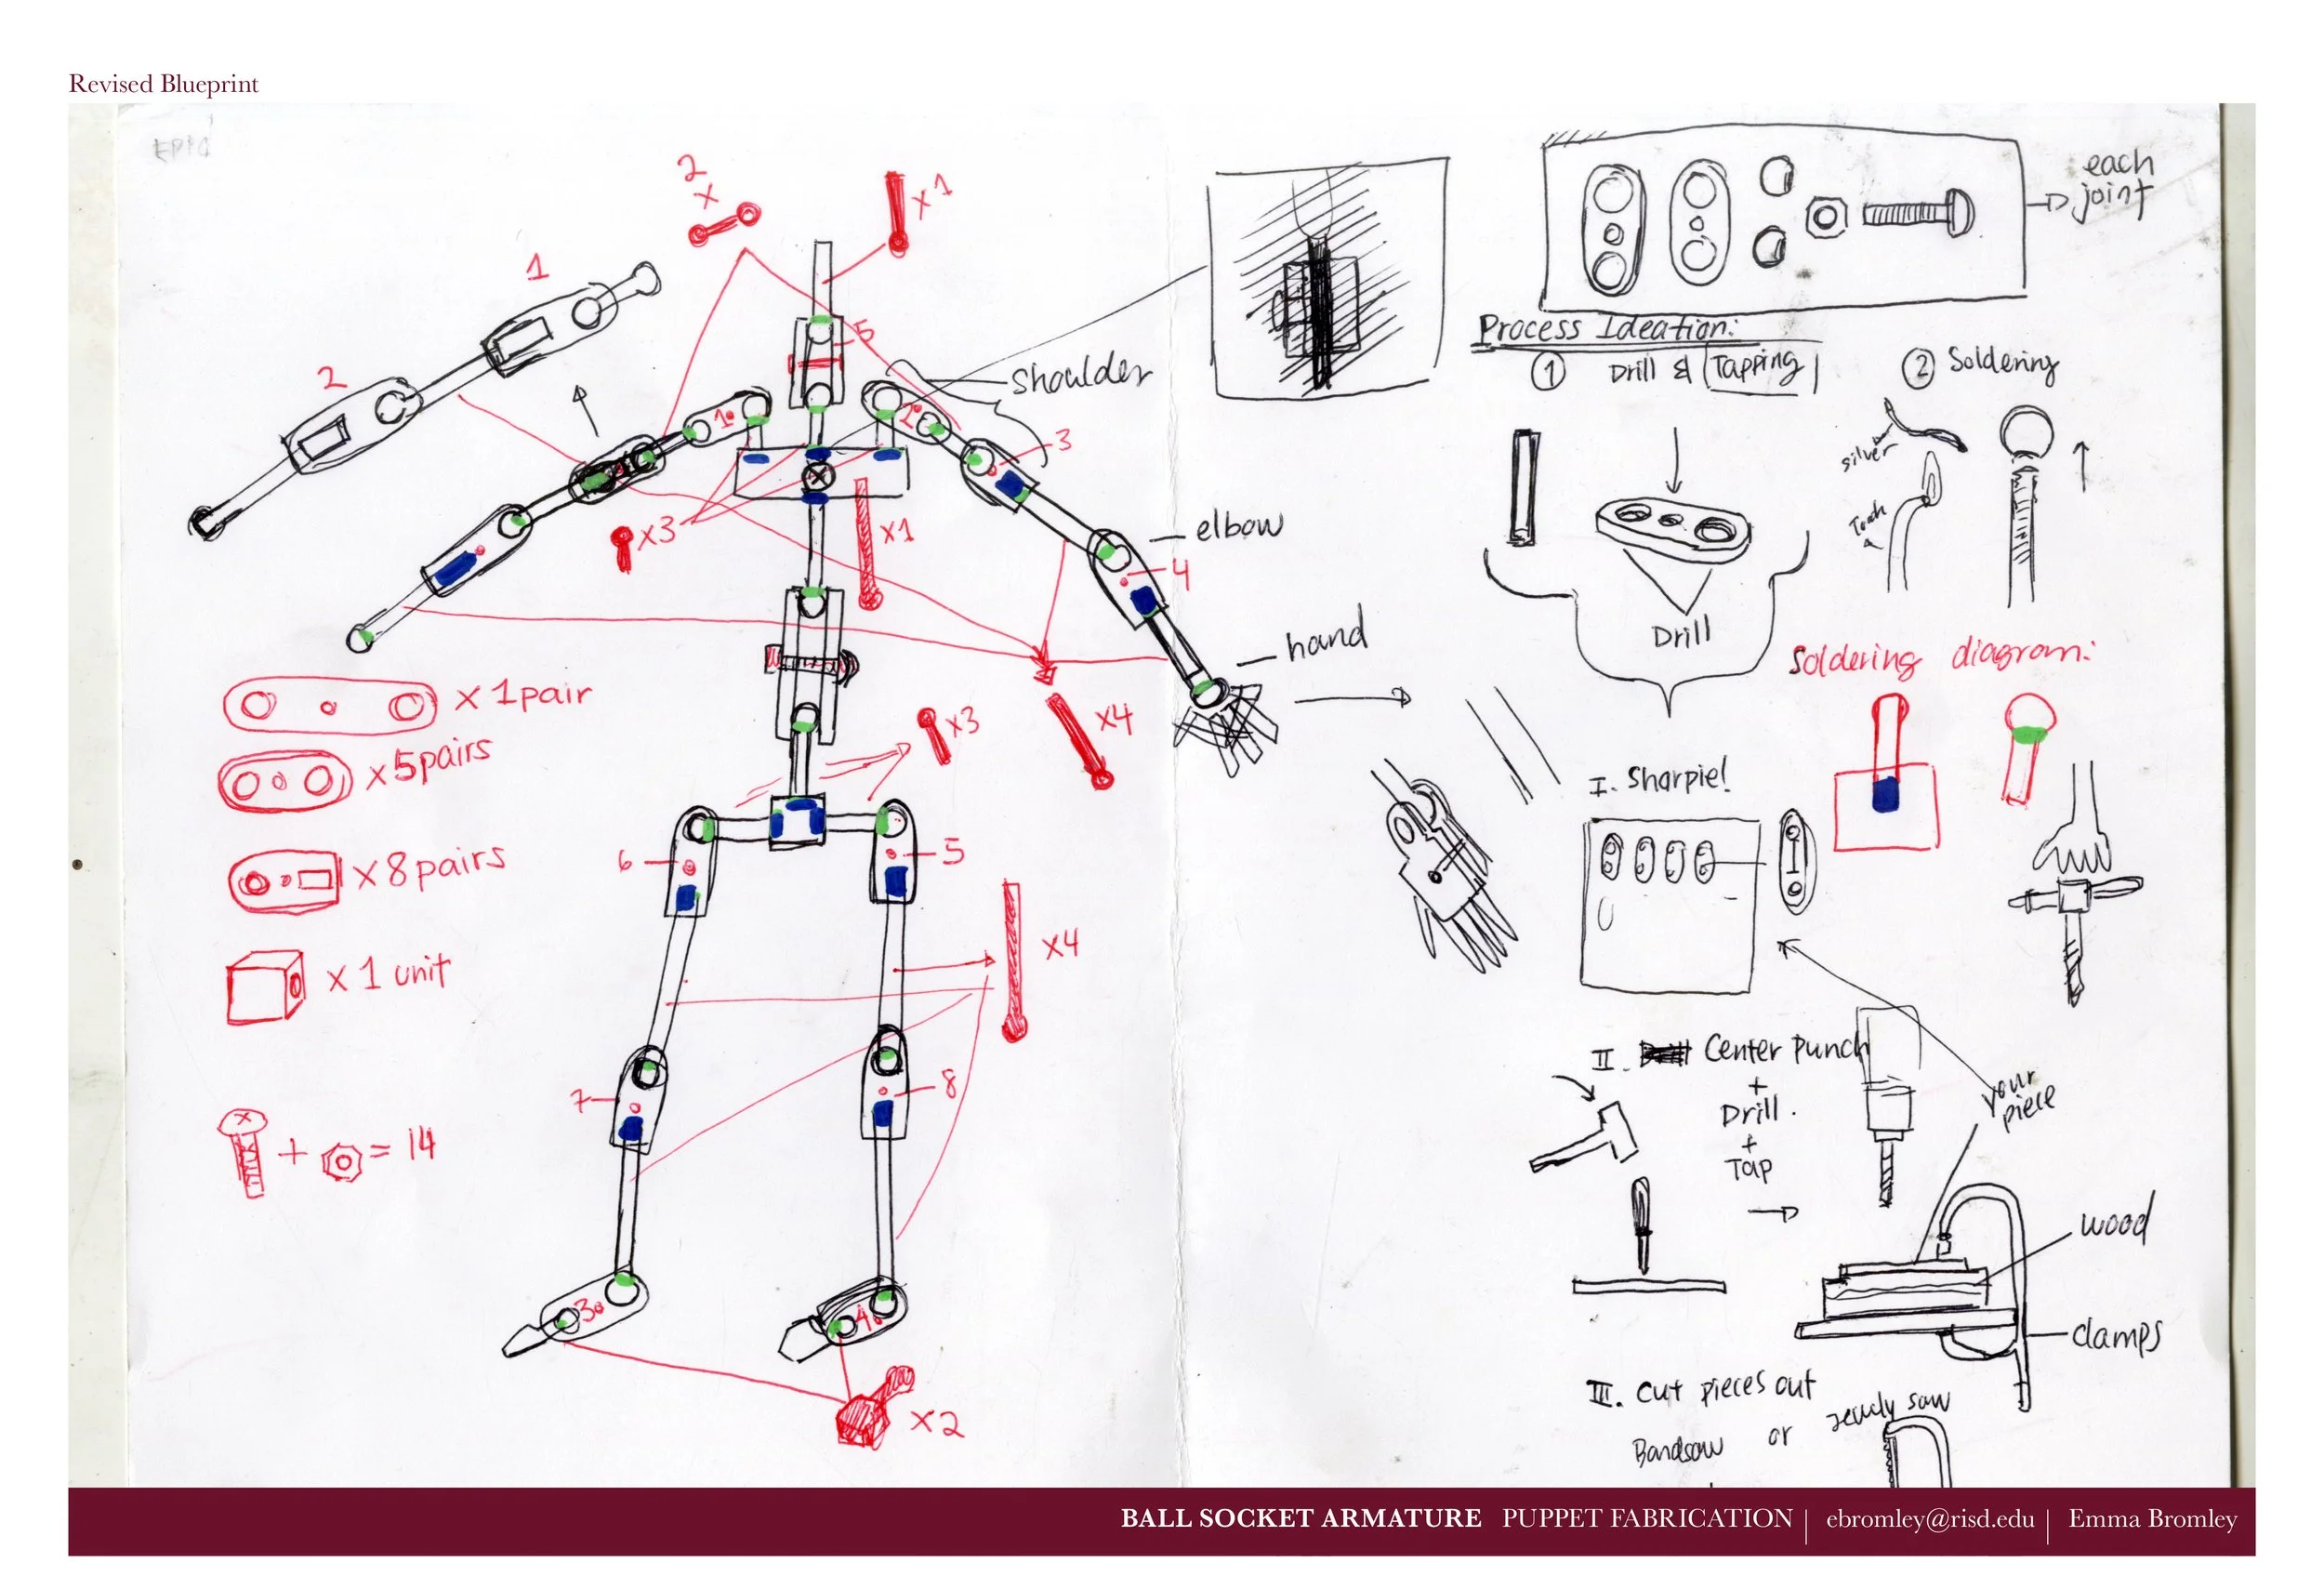 Revised Blueprint
EPIC
2
x
x1
1
2
5
1
2
shoulder
3
x3
x1
elbow
4
hand
x1 pair
x5 pairs
x8 pairs
x1 unit
+ = 14
x3
x4
6
5
x4
7
8
3
4
x2
each
joint
Process Ideation:
1 Drill & Tapping
2 Soldering
silver
Torch
Drill
Soldering diagram:
I. Sharpie!
II. Center punch
+
Drill.
+
Tap
your
piece
wood
clamps
III. Cut pieces out
Bandsaw or jewely saw
BALL SOCKET ARMATURE PUPPET FABRICATION | ebromley@risd.edu | Emma Bromley